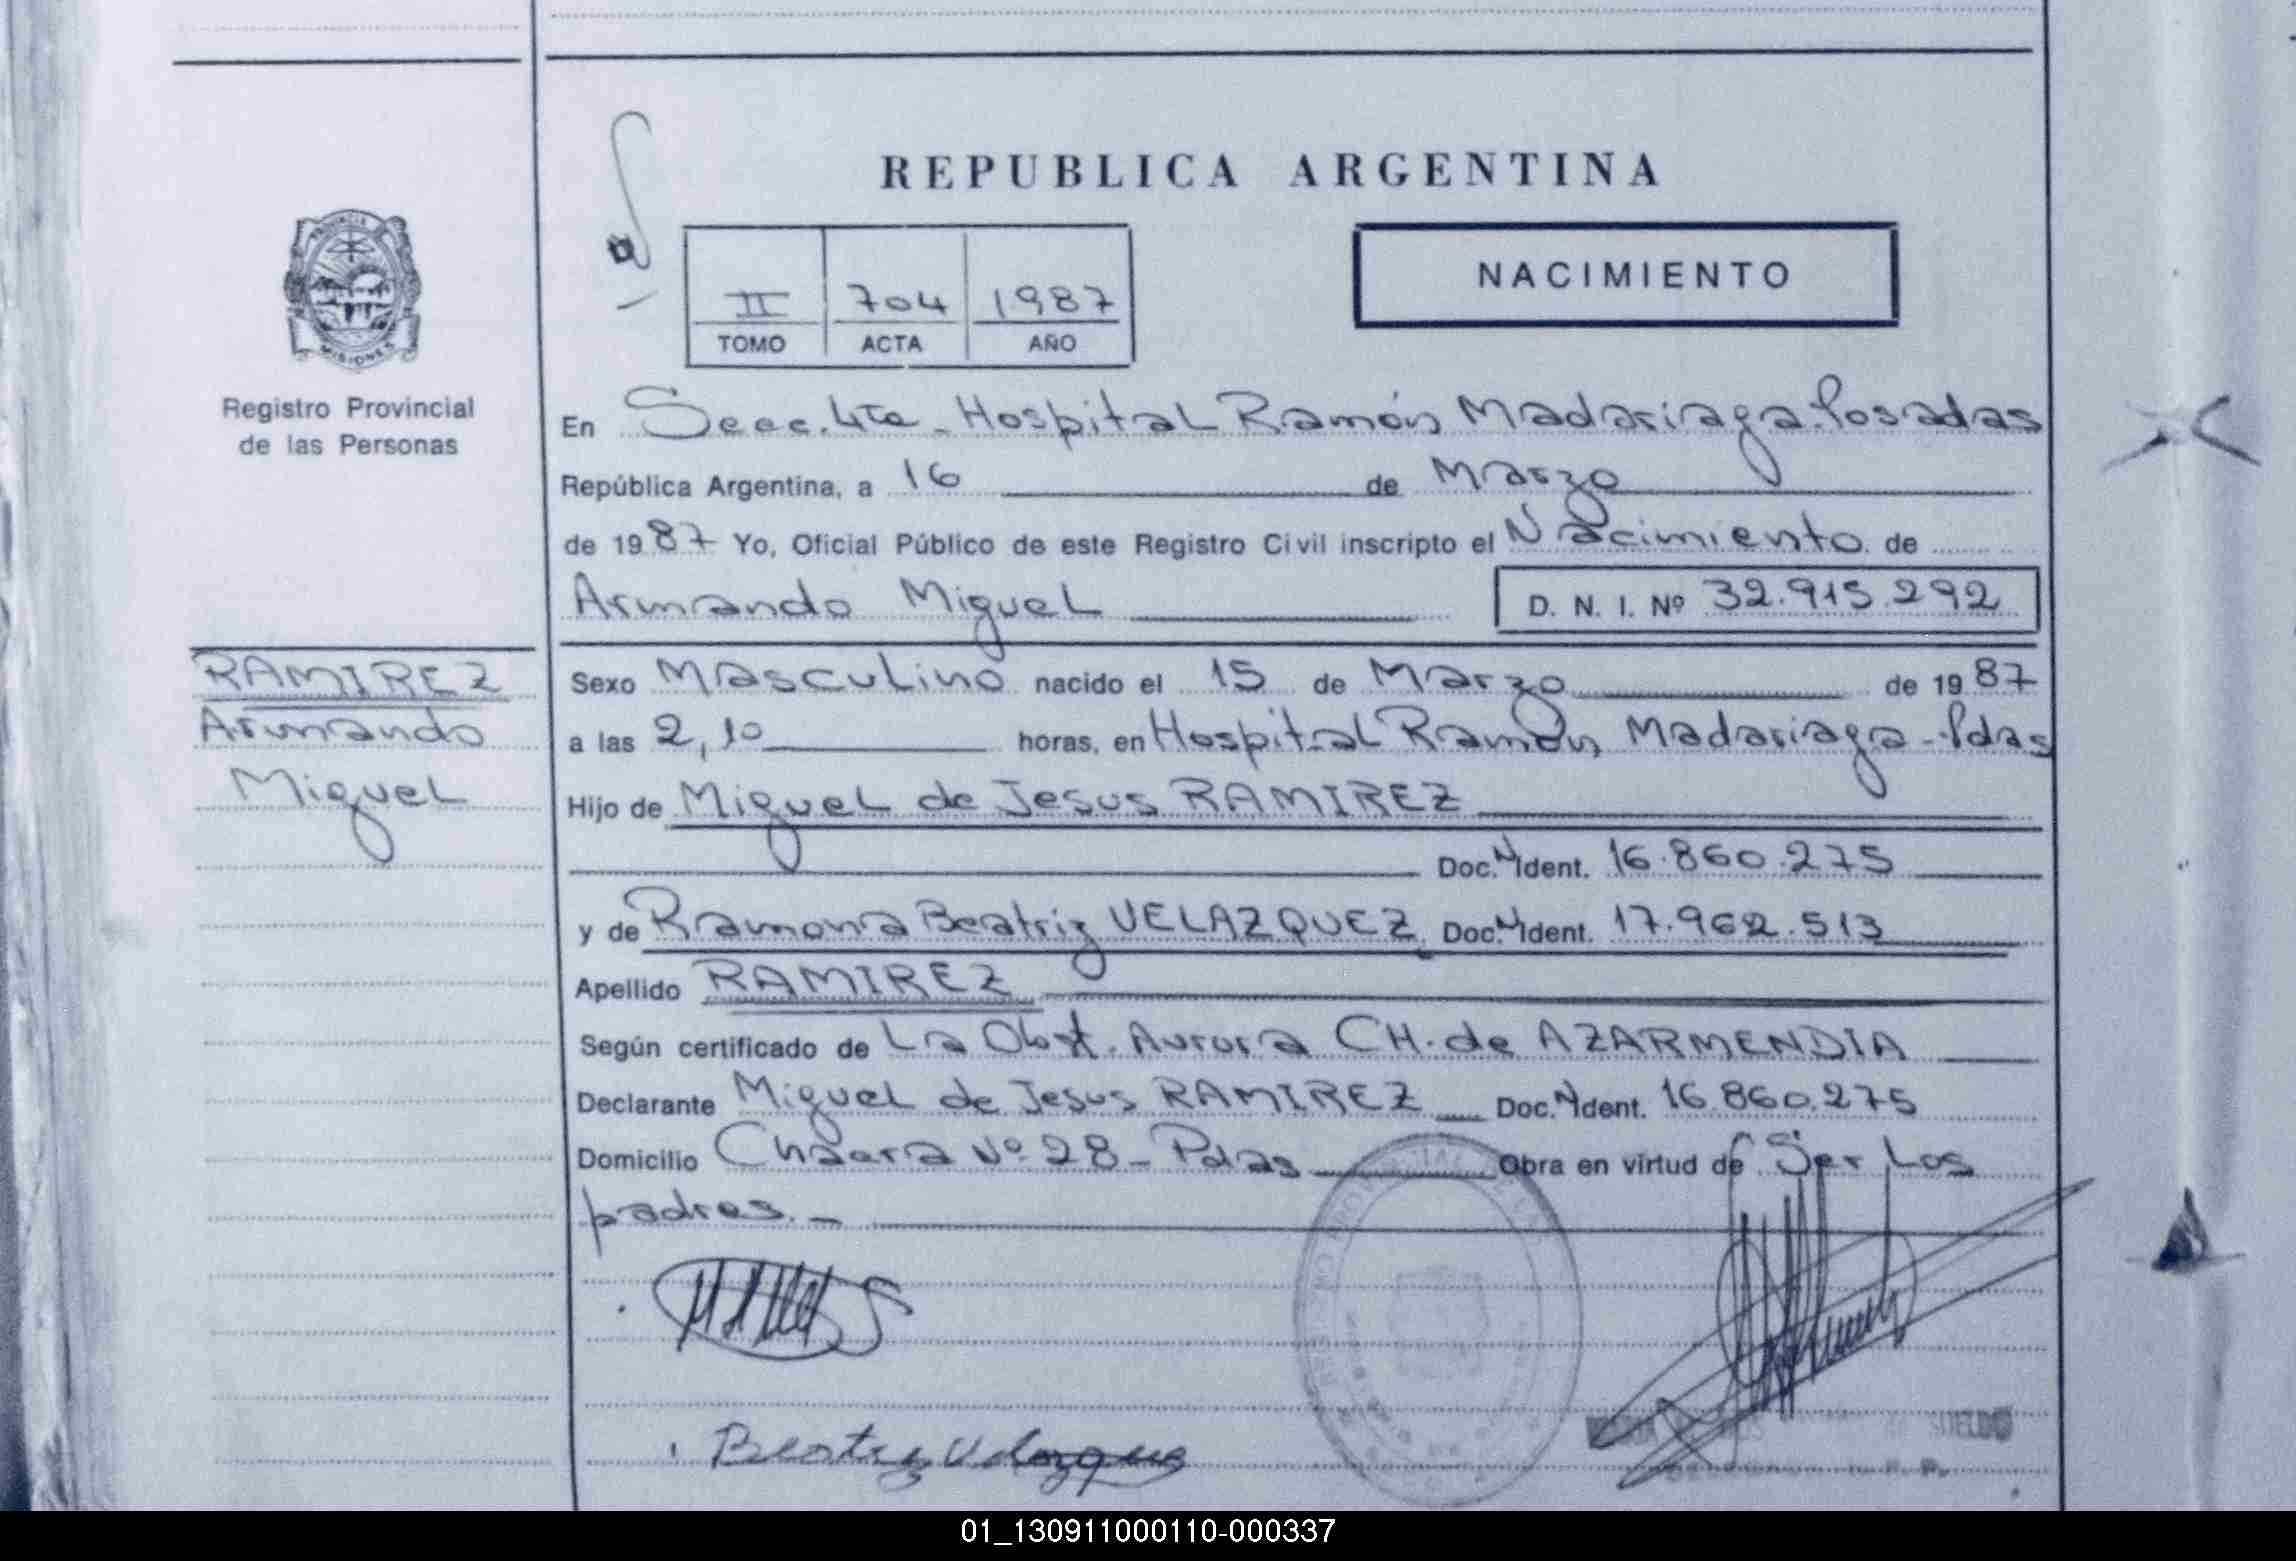 REPUBLICA ARGENTINA
PROVINCIA DE
MISIONES
Registro Provincial
de las Personas
II 704 1987
TOMO ACTA AÑO
NACIMIENTO
En Secc. 4ta - Hospital Ramón Madariaga. Posadas
República Argentina, a 16 de Marzo
de 1987 Yo, Oficial Público de este Registro Civil inscripto el Nacimiento de
Armando Miguel D. N. I. Nº 32.915.292
RAMIREZ
Armando
Miguel
Sexo Masculino nacido el 15 de Marzo de 1987
a las 2,10 horas, en Hospital Ramón Madariaga - Pdas
Hijo de Miguel de Jesus RAMIREZ
Doc. N Ident. 16.860.275
y de Ramona Beatriz VELAZQUEZ Doc. N Ident. 17.962.513
Apellido RAMIREZ
Según certificado de La Obst. Aurora CH. de AZARMENDIA
Declarante Miguel de Jesus RAMIREZ Doc. N Ident. 16.860.275
Domicilio Chacra Nº 28 - Pdas Obra en virtud de Ser Los
padres. -
Beatriz Velazquez
SUELDO
01_130911000110-000337